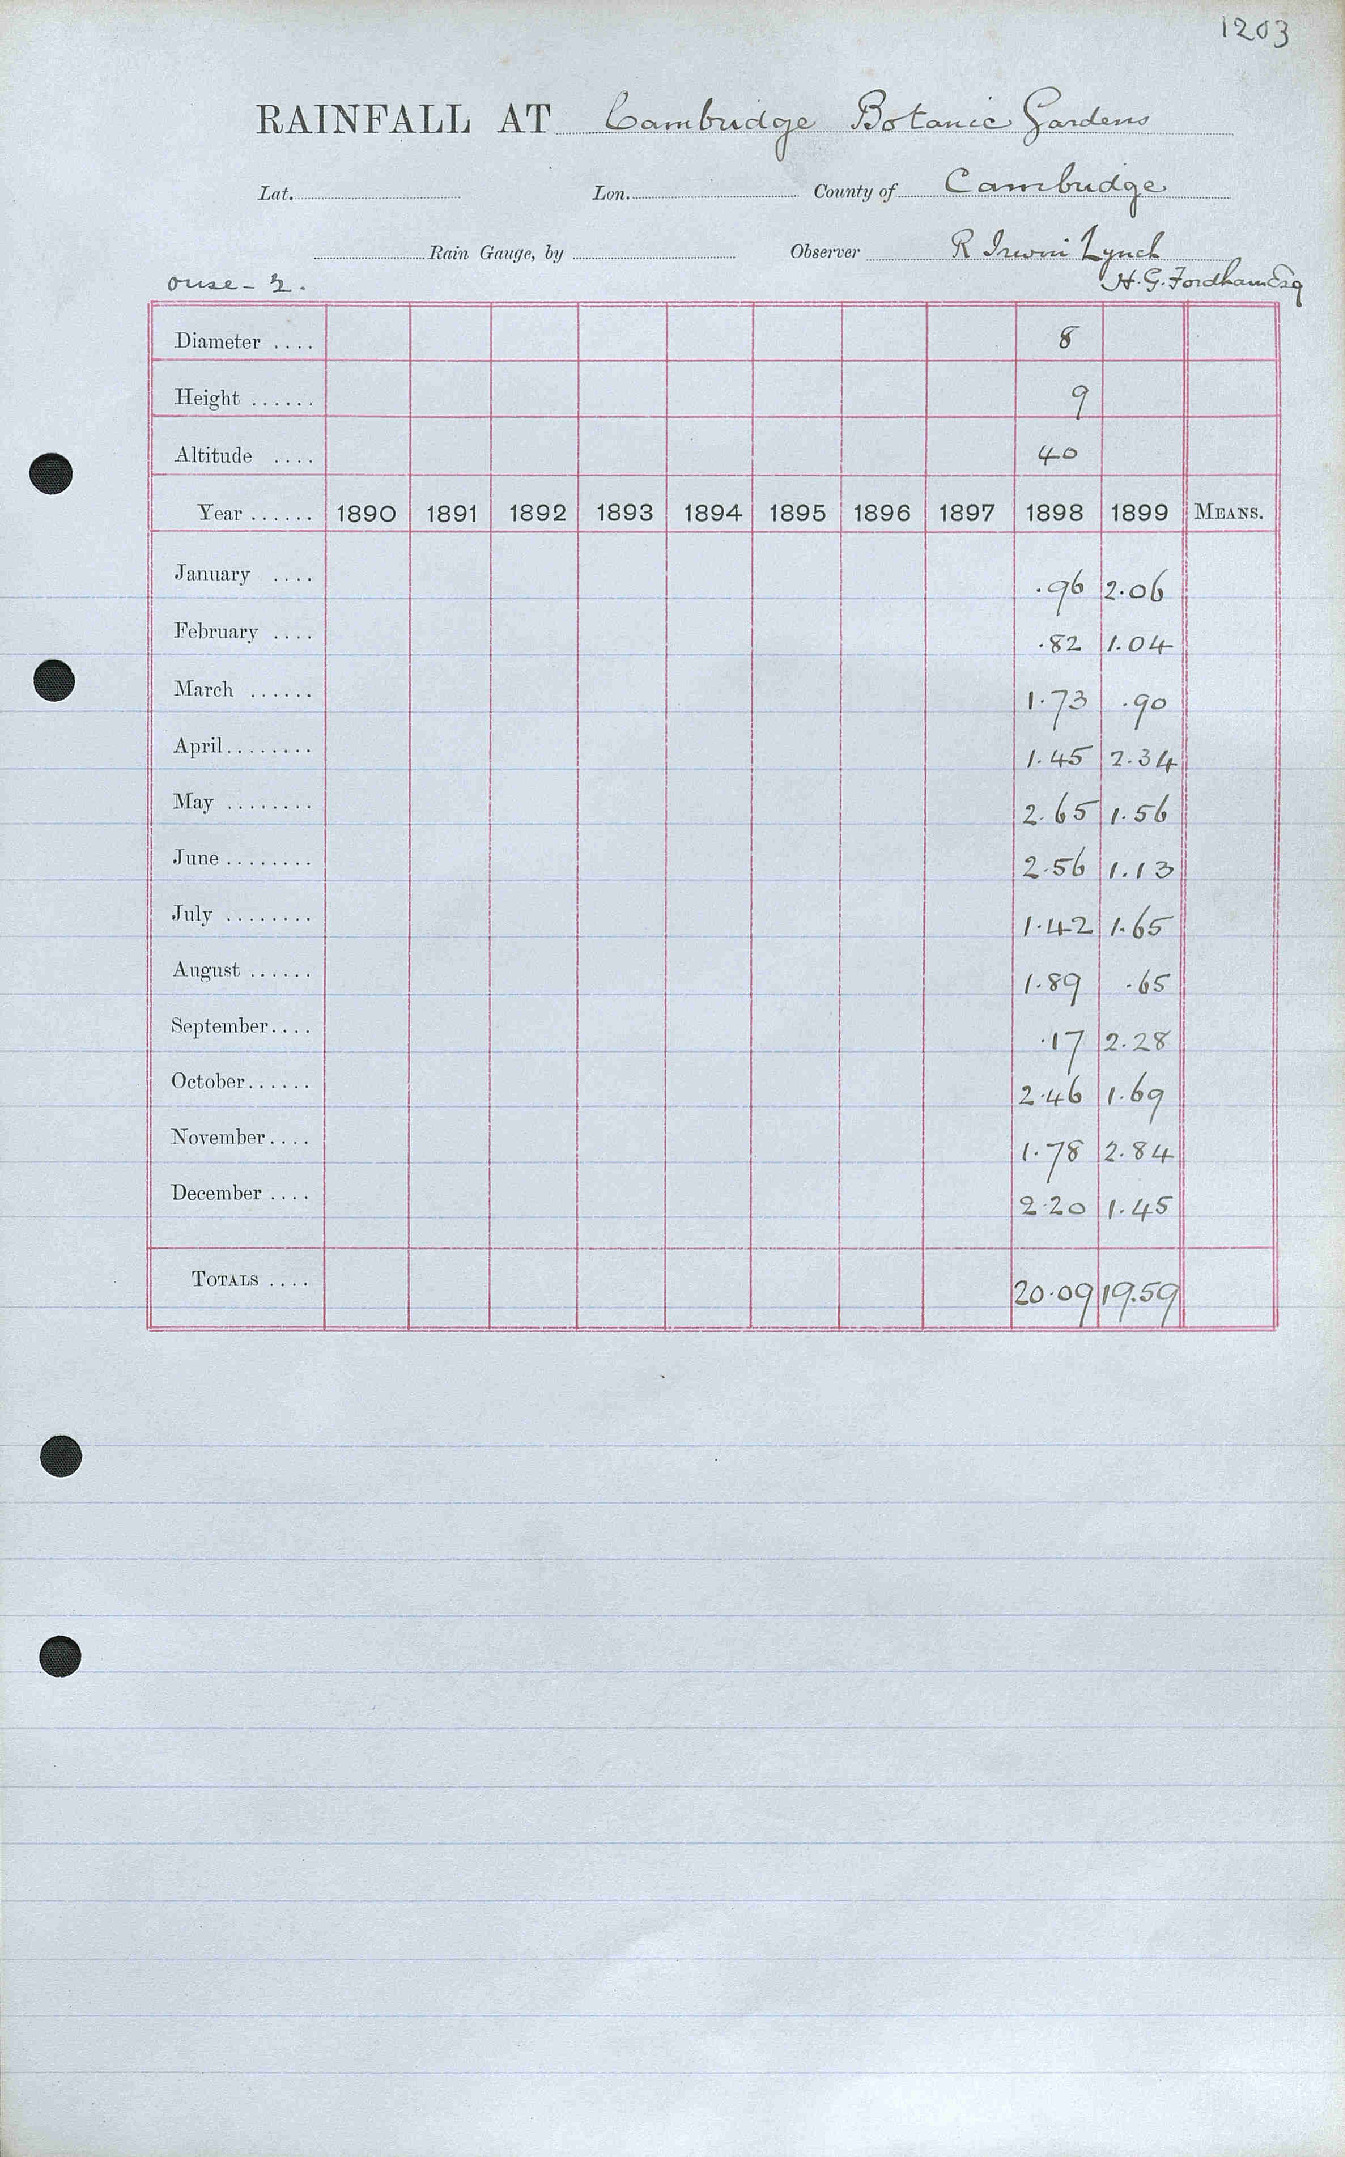 1203
RAINFALL AT Cambridge Botanic Gardens
Lat. Lon. County of Cambridge
Rain Gauge, by Observer R Irwin Lynch
ouse - 2. H. G. Fordham Esq
Diameter .... 8
Height ...... 9
Altitude .... 40
Year ...... 1890 1891 1892 1893 1894 1895 1896 1897 1898 1899 MEANS.
January .... .96 2.06
February .... .82 1.04
March ...... 1.73 .90
April........ 1.45 2.34
May ........ 2.65 1.56
June ........ 2.56 1.13
July ........ 1.42 1.65
August ...... 1.89 .65
September.... .17 2.28
October...... 2.46 1.69
November.... 1.78 2.84
December .... 2.20 1.45
TOTALS .... 20.09 19.59